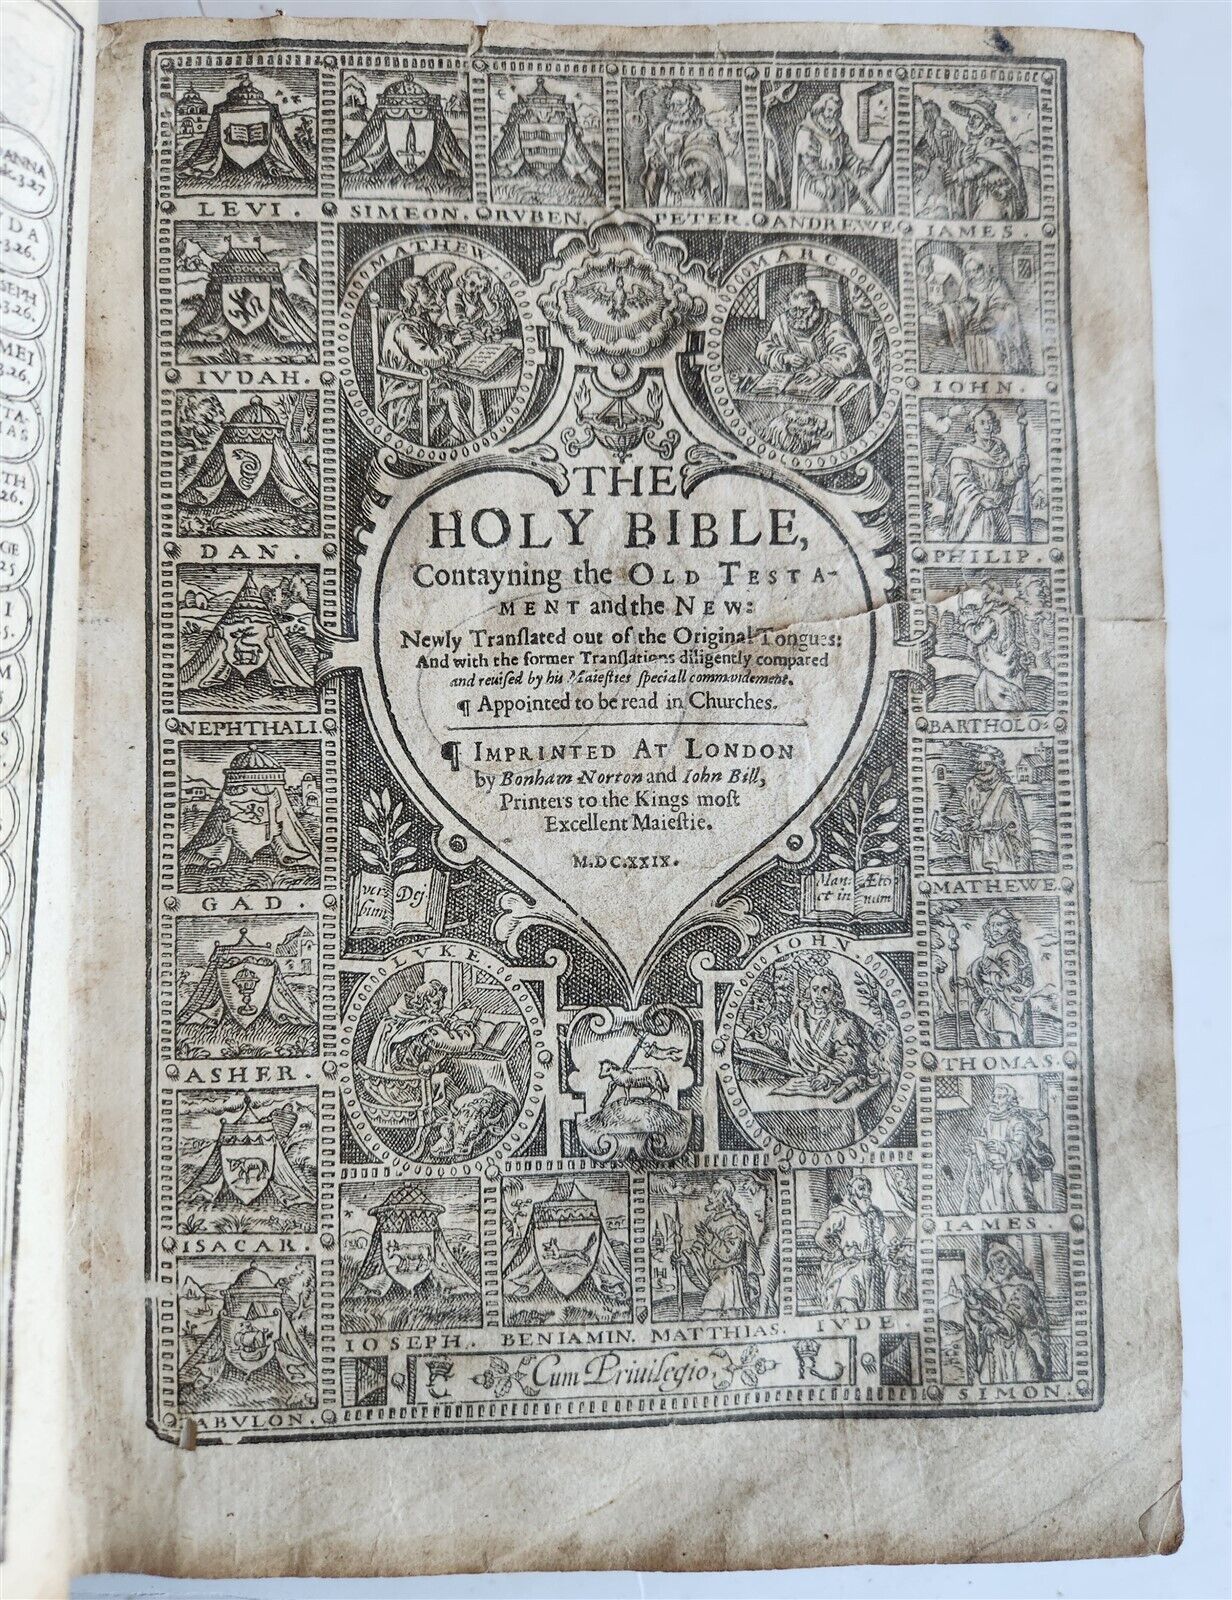 ANNA
3.27
DA
3.26.
SEPH
3.26.
MEI
3.26.
TA-
IAS
TH
26.
GE
25
I
5.
M
S
LEVI. SIMEON. RVBEN. PETER. ANDREWE IAMES
MATHEW.
MARC.
IVDAH.
IOHN.
DAN.
PHILIP.
NEPHTHALI.
BARTHOLO:
GAD.
MATHEWE
ASHER.
THOMAS.
ISACAR.
IAMES
ZABVLON.
SIMON
THE
HOLY BIBLE,
Contayning the OLD TESTA-
MENT and the NEW:
Newly Tranſlated out of the Original Tongues:
And with the former Tranſlations diligently compared
and reuiſed by his Maieſties ſpeciall commandement.
¶ Appointed to be read in Churches.
¶ IMPRINTED AT LONDON
by Bonham Norton and Iohn Bill,
Printers to the Kings moſt
Excellent Maieſtie.
M.DC.XXIX.
ver- Dej
bum
Man- Æter-
et in num
LVKE.
IOHN
IOSEPH. BENIAMIN. MATTHIAS. IVDE.
Cum Priuilegio,